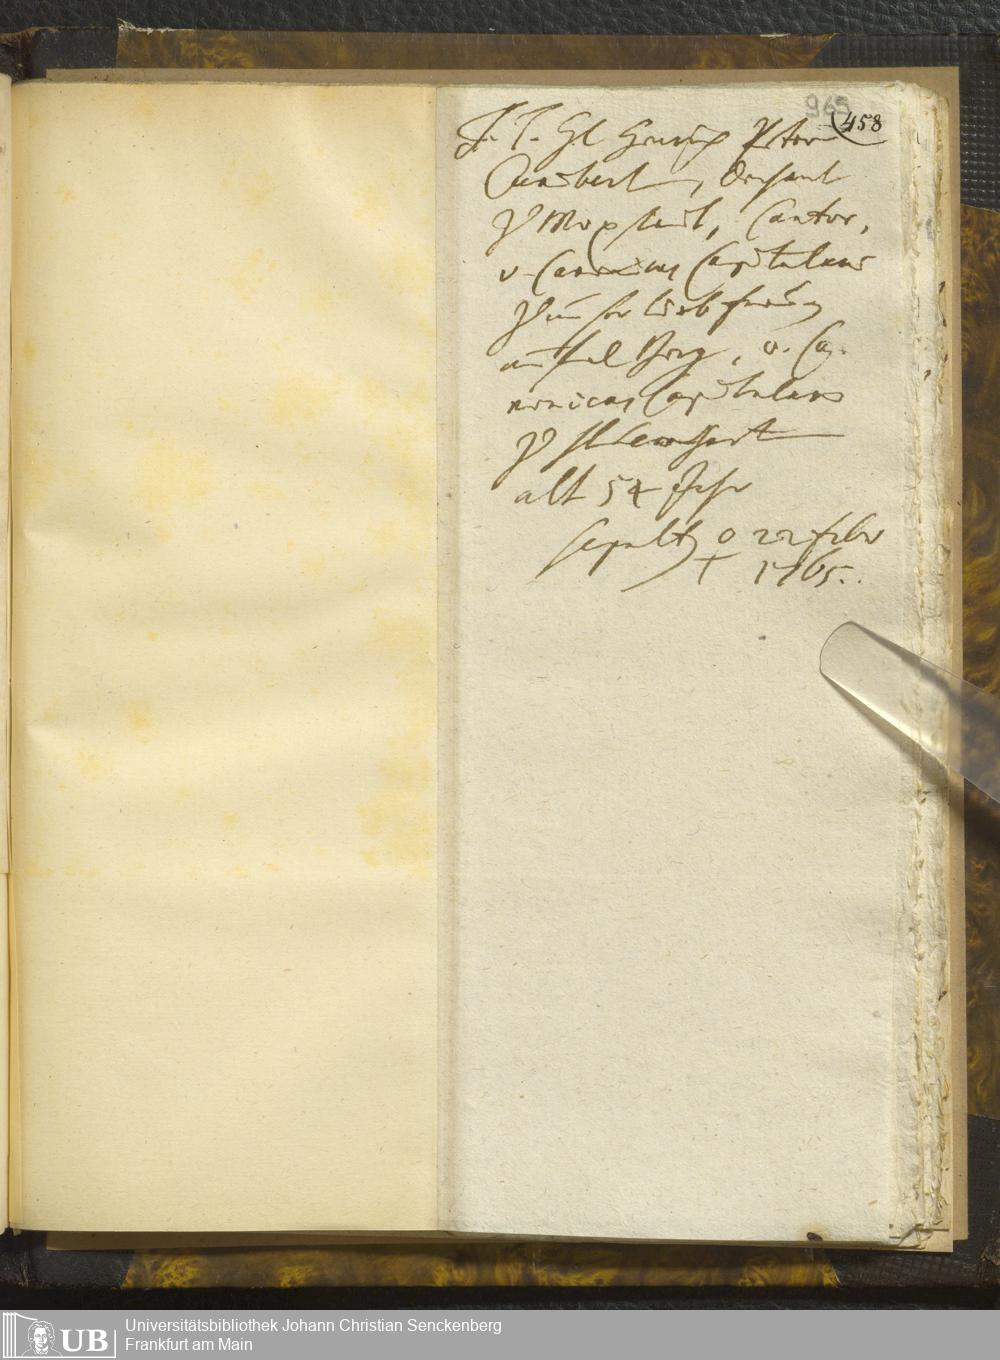 965
458
S. T. Hl Henrich Peter
Cunibert, Dechant
z Moxstadt, Cantor,
v. Canonicus Capitularis
z unser lieb frauen
auf dem Berg, v. Ca-
nonicus Capitularis
z St Leonhart
alt 54 Jahr
sepult 22 febr
1765.
UB
Universitätsbibliothek Johann Christian Senckenberg
Frankfurt am Main